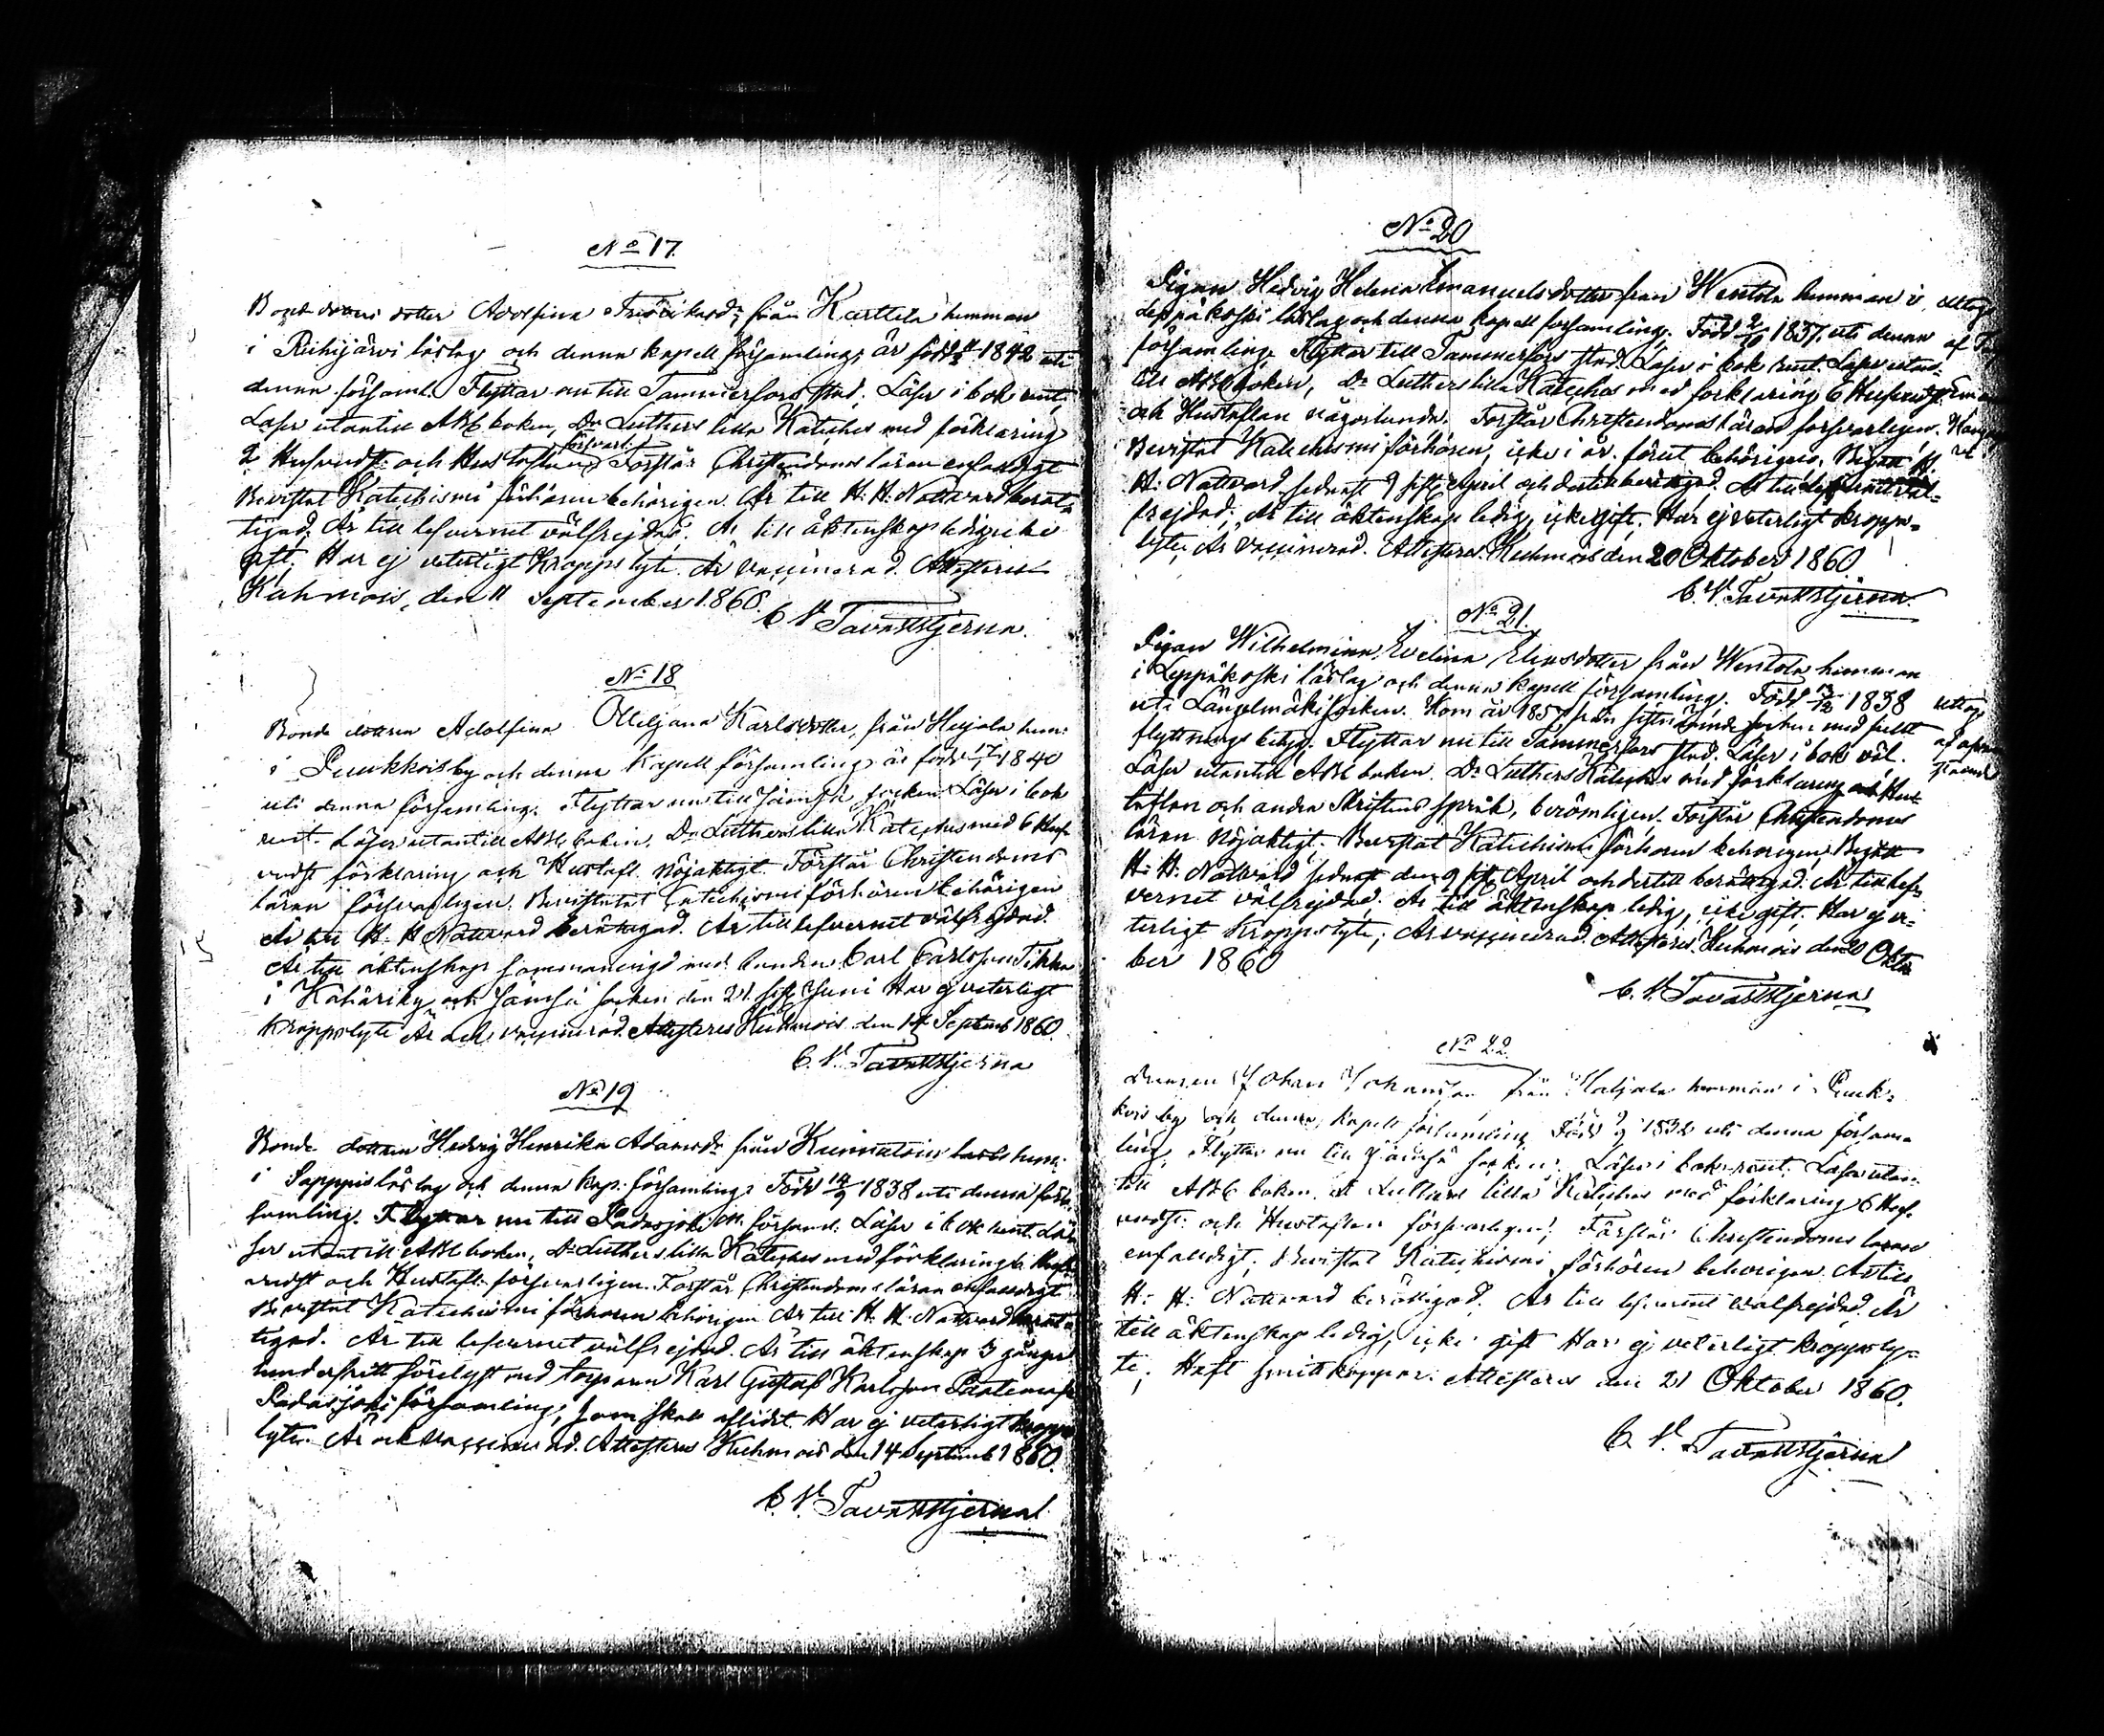 No 17.
Bondedotter Adolfina från Karttila hemman
i Riihijärvi låslag och denna kapell församling; är född 1842 uti
denna församl. Flyttar nu till Tammerfors stad; Läser i bok rent,
Läser utantill ABC boken, Dr Luthers lilla Kateches med förklaring
försvarl.
2 Husandst. och Hustaflan Förstår Christendoms läran enfaldigt
Bevistat Katechismi förhören behörigen. Är till H. H. Nattvard berät-
tigad. Är till lefvernet välfrejdad. Är till äktenskap ledig icke
gift. Har ej veterligt Kroppslyte. Är vaccinerad. Attesteras
Kuhmois, den 11 September 1860.
C. A. Tavaststjerna.
No 18
Bonde dottren Adolfina Karlsdotter, från Heijala hem:
i Puukkoisby och denna Kapell församling är född 1840
uti denna församling. Flyttar nu till Jämsä socken Läser i bok
rent. Läser utantill ABC boken, Dr Luthers lilla Kateches med 6 Husf.
andst förklaring och Hustafl. nöjaktigt. Förstår Christendoms
läran försvarligen. Bevistat Katechismi förhören behörigen
Är till H. H. Nattvard berättigad. Är till lefvernet välfrejdad.
Är till äktenskap sammanvigd med bonden Carl Carlsson Tikka
i och Jämsä socken den 21 sistl. Juni Har ej veterligt
Kroppslyte Är och vaccinerad. Attesteras Kuhmois den 14 Septemb 1860.
C. A. Tavaststjerna
No 19
Bonde dottren Hedvig Henrika Adamsdr från hem:
i Sappis låslag och denna kap. församling; Född 14/9 1838 uti denna för-
samling. Flyttar nu till Padasjoki M. församl. Läser i bok rent. Lä-
ser utantill ABC boken, Dr Luthers lilla Kateches med förklaring 6 Husf.
andst och Hustafl. försvarligen. Förstår Christendoms läran enfaldigt
Bevistat Katechismi förhören behörigen Är till H. H. Nattvard berät-
tigad. Är till lefvernet välfrejdad. Är till äktenskap 3 gånger
förelyst med torparen Karl Gustaf Karlsson
Padasjoki församling, som skall aflidit. Har ej veterligt Kropps-
lyte. Är och vaccinerad. Attesteras Kuhmois den 14 Septemb 1860.
C. A. Tavaststjerna.
No 20
Pigan Hedvig Helena Emanuelsdotter från Wentola hemman i
Leppäkoski låslag och denna kapell församling; Född 1837. uti denna
församling. Flyttar till Tammerfors stad. Läser i bok rent. Läser utan-
till ABC boken, Dr Luthers lilla Kateches med förklaring 6 Husandst.
och Hustaflan någorlunda. Förstår Christendoms läran försvarligen.
Bevistat Katechismi förhören, icke i år. förut behörigen. Begått H.
H. Nattvard sednast 9 sistl. April och dertill berättigad. Är till lefvernet väl-
frejdad. Är till äktenskap ledig, icke gift. Har ej veterligt kropps-
lyte. Är vaccinerad. Attesteras. Kuhmois den 20 Oktober 1860
C. A. Tavaststjerna.
No 21.
Pigan Wilhelmina Evelina Eliasdotter från Wentola hemman
i Leppäkoski låslag och denna kapell församling. Född 1838
uti Längelmäki socken. Kom år 1857 från socken med
flyttnings betyg. Flyttar nu till Tammerfors stad. Läser i bok väl.
Läser utantill ABC boken. Dr Luthers Kateches med förklaring och Hus-
taflan och andra Skriftens språk, berömligen. Förstår Christendoms
läran nöjaktigt. Bevistat Katechismi förhören behörigen Begått
H. H. Nattvard sednast den 9 sistl. April och dertill berättigad. Är till lef-
vernet välfrejdad. Är till äktenskap ledig, icke gift. Har ej ve-
terligt Kroppslyte; Är vaccinerad. Attesteras Kuhmois den 20 Okto
ber 1860
C. A. Tavaststjerna
No 22.
Drengen Johan Johansson från Heijala hemman i Puuk-
kois by och denna kapell församling Född 1832 uti denna försam-
ling, Flyttar nu till Jämsä socken. Läser i bok rent. Läser utan-
till ABC boken. Dr Luthers lilla Kateches med förklaring 6 Husf.
andst. och Hustaflan försvarligen; Förstår Christendoms läran
enfaldigt; Bevistat Katechismi förhören behörigen. Är till
H. H. Nattvard berättigad. Är till lefvernet välfrejdad. Är
till äktenskap ledig, icke gift Har ej veterligt kroppsly-
te; Haft smittkoppor. Attesteras den 21 Oktober 1860.
C. A. Tavaststjerna